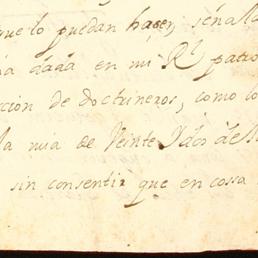 que lo puedan hacer, señala
dada en mi Rl. patro
ccion de doctrineros, como lo
la mia de Veinte y dos de
sin consentir que en cossa